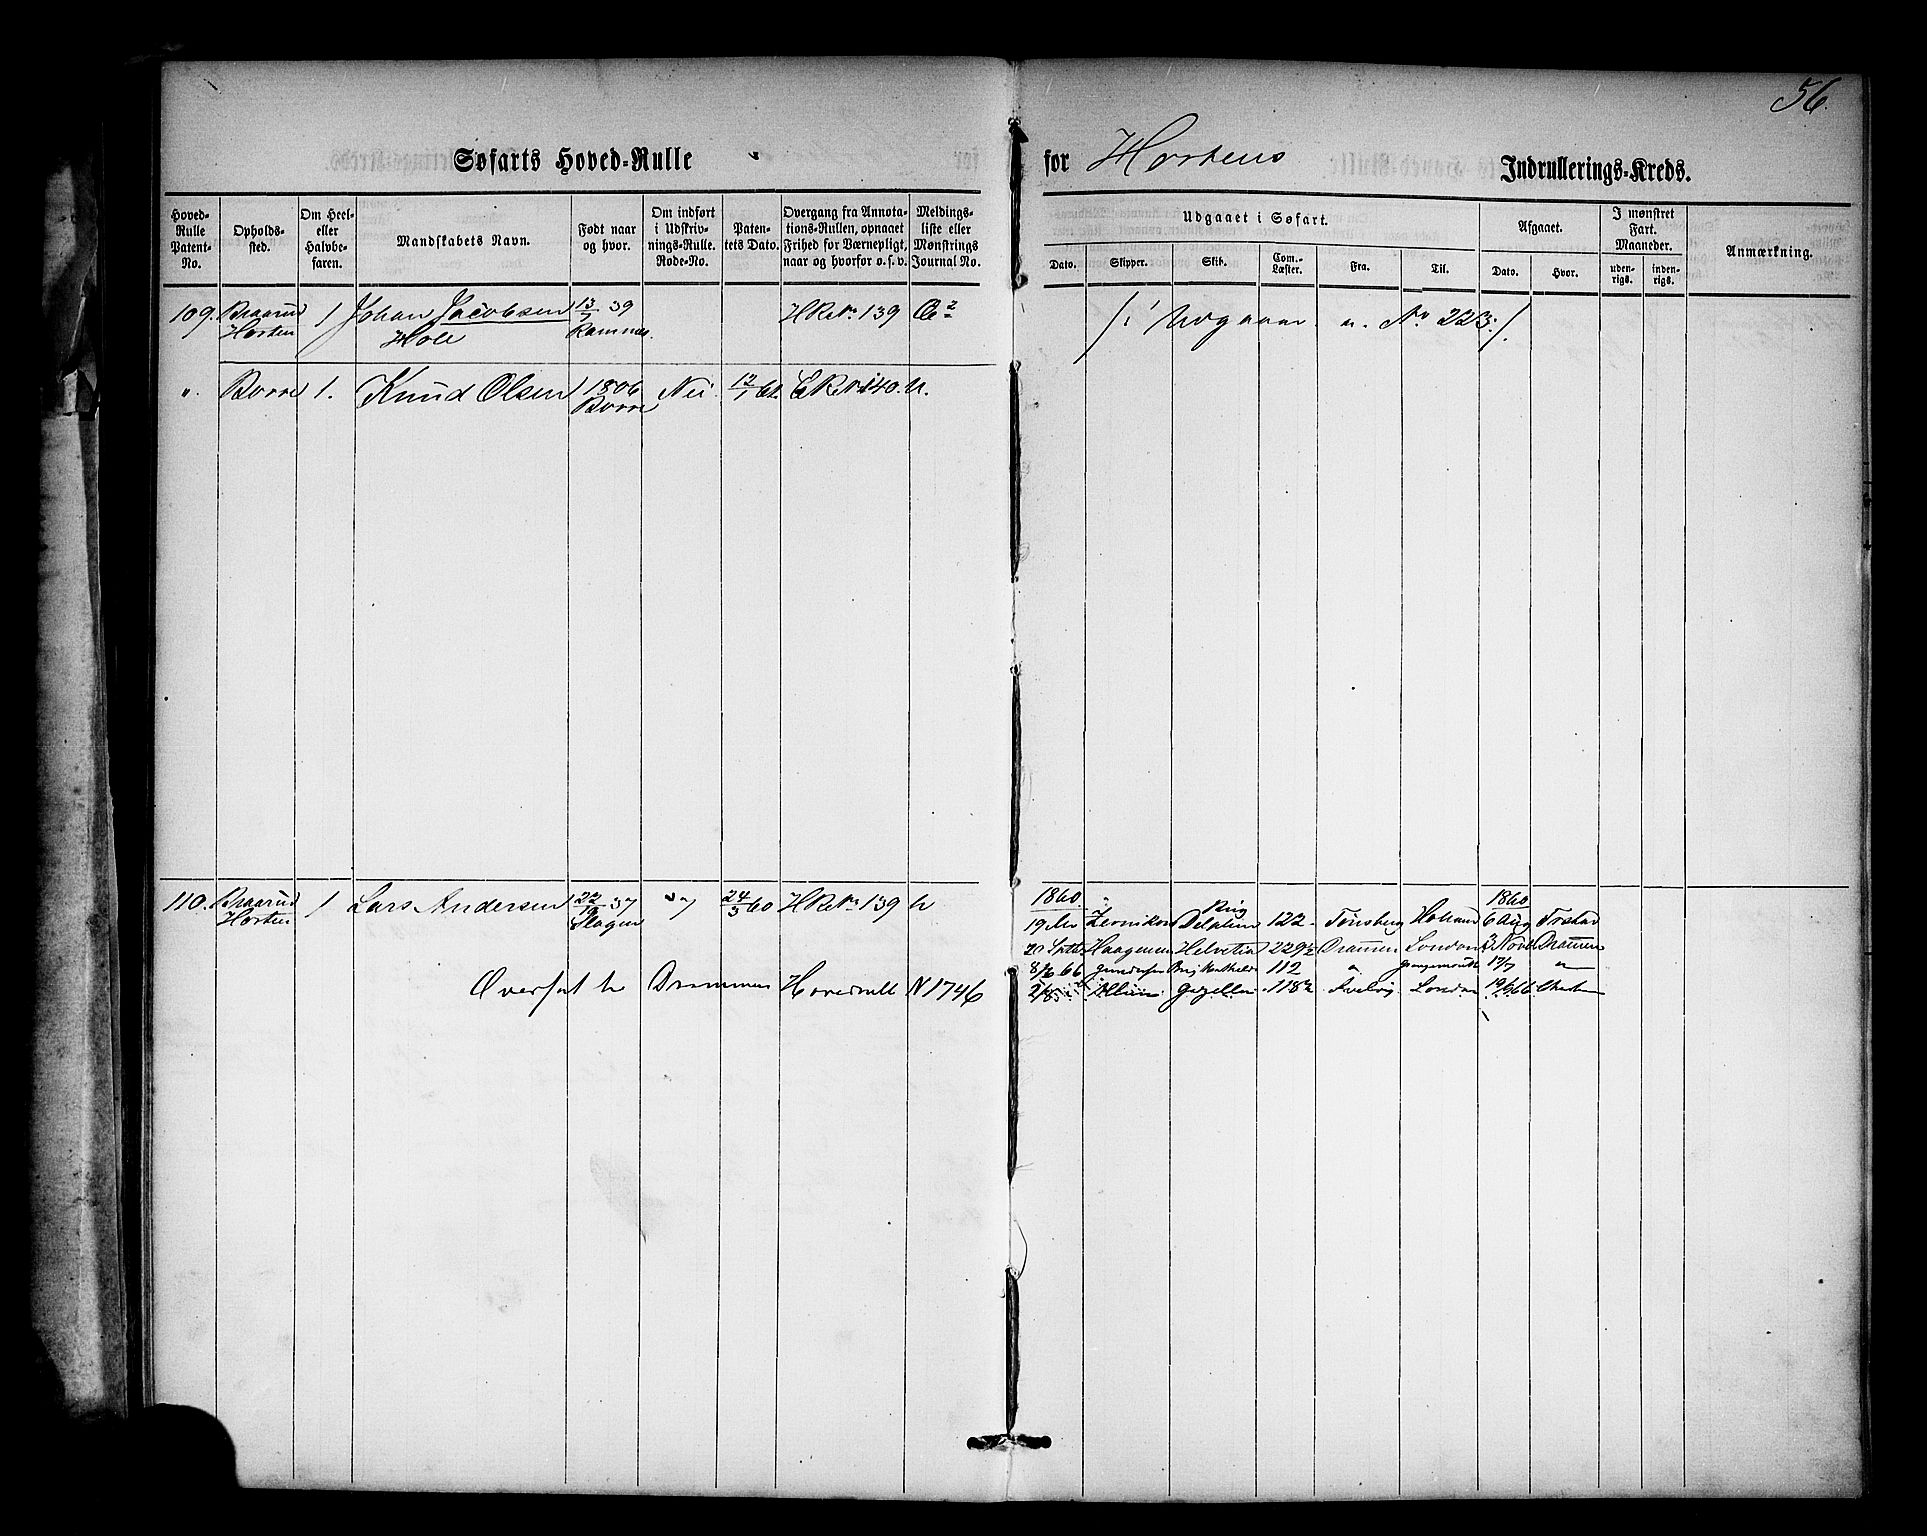 56.
Søfarts Hoved-Rulle for Hortens Indrullerings-Kreds.
Hoved-Rulle Patent-No.
Opholds-sted.
Om Heel- eller Halvbe-faren.
Mandskabets Navn.
Født naar og hvor.
Om indført i Udskriv-nings-Rulle. Rode-No.
Paten-tets Dato.
Overgang fra Annota-tions-Rullen, opnaaet Frihed for Værnepligt, naar og hvorfor o. s. v.
Meldings-liste eller Mønstrings Journal No.
Udgaaet i Søfart.
Dato. Skipper. Skib. Com.-Læster. Fra. Til.
Afgaaet.
Dato. Hvor.
I mønstret Fart. Maaneder.
uden-rigs. inden-rigs.
Anmærkning.
109. Braarud 1 Johan Jacobsen 13/7 39 H R No 139
Horten Hole Ramnes.
/: Udgaaer. No 223 :/
". Borre 1. Knud Olsen 1806 Nei 12/7 61. No 140. U.
Borre
110. Braarud 1 Lars Andersen 22/12 37 24/3 60 H R No 139
Horten Slagen
1860 " Brig 1860
19 122 Tønsberg Holland 6 Aug
20 Haagensen Helvetia 229½ Drammen London 3 Novb Drammen
8/6 66 Gundersen Brig Mathilde 112 " Grangemouth 17/7 "
Gazellen 118½ Svelvig London 19/6 66
Overført til Drammens Hovedrull N 1746